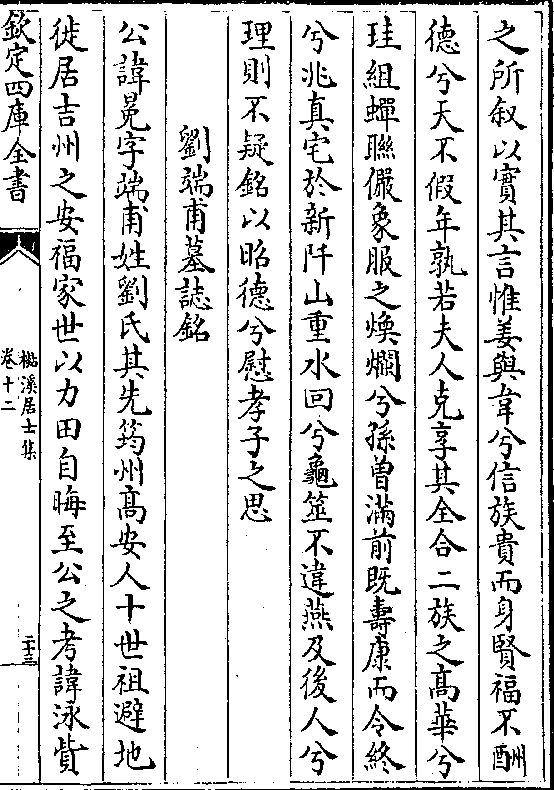 之所叙以實其言惟姜與韋兮信族貴而身賢福不酬
德兮天不假年孰若夫人克享其全合二族之髙華兮
珪組蟬聯儼象服之煥爛兮孫曽滿前既壽康而令終
兮兆真宅於新阡山重水回兮龜筮不違燕及後人兮
理則不疑銘以昭德兮慰孝子之思
劉端甫墓誌銘
公諱冕字端甫姓劉氏其先筠州髙安人十世祖避地
徙居吉州之安福家世以力田自晦至公之考諱泳貲
欽定四庫全書
檆溪居士集
卷十二
二十三